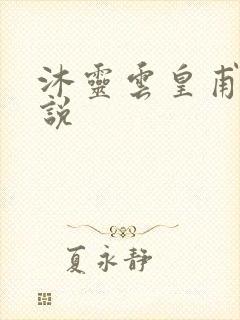 沐靈雲皇甫
說
夏永靜